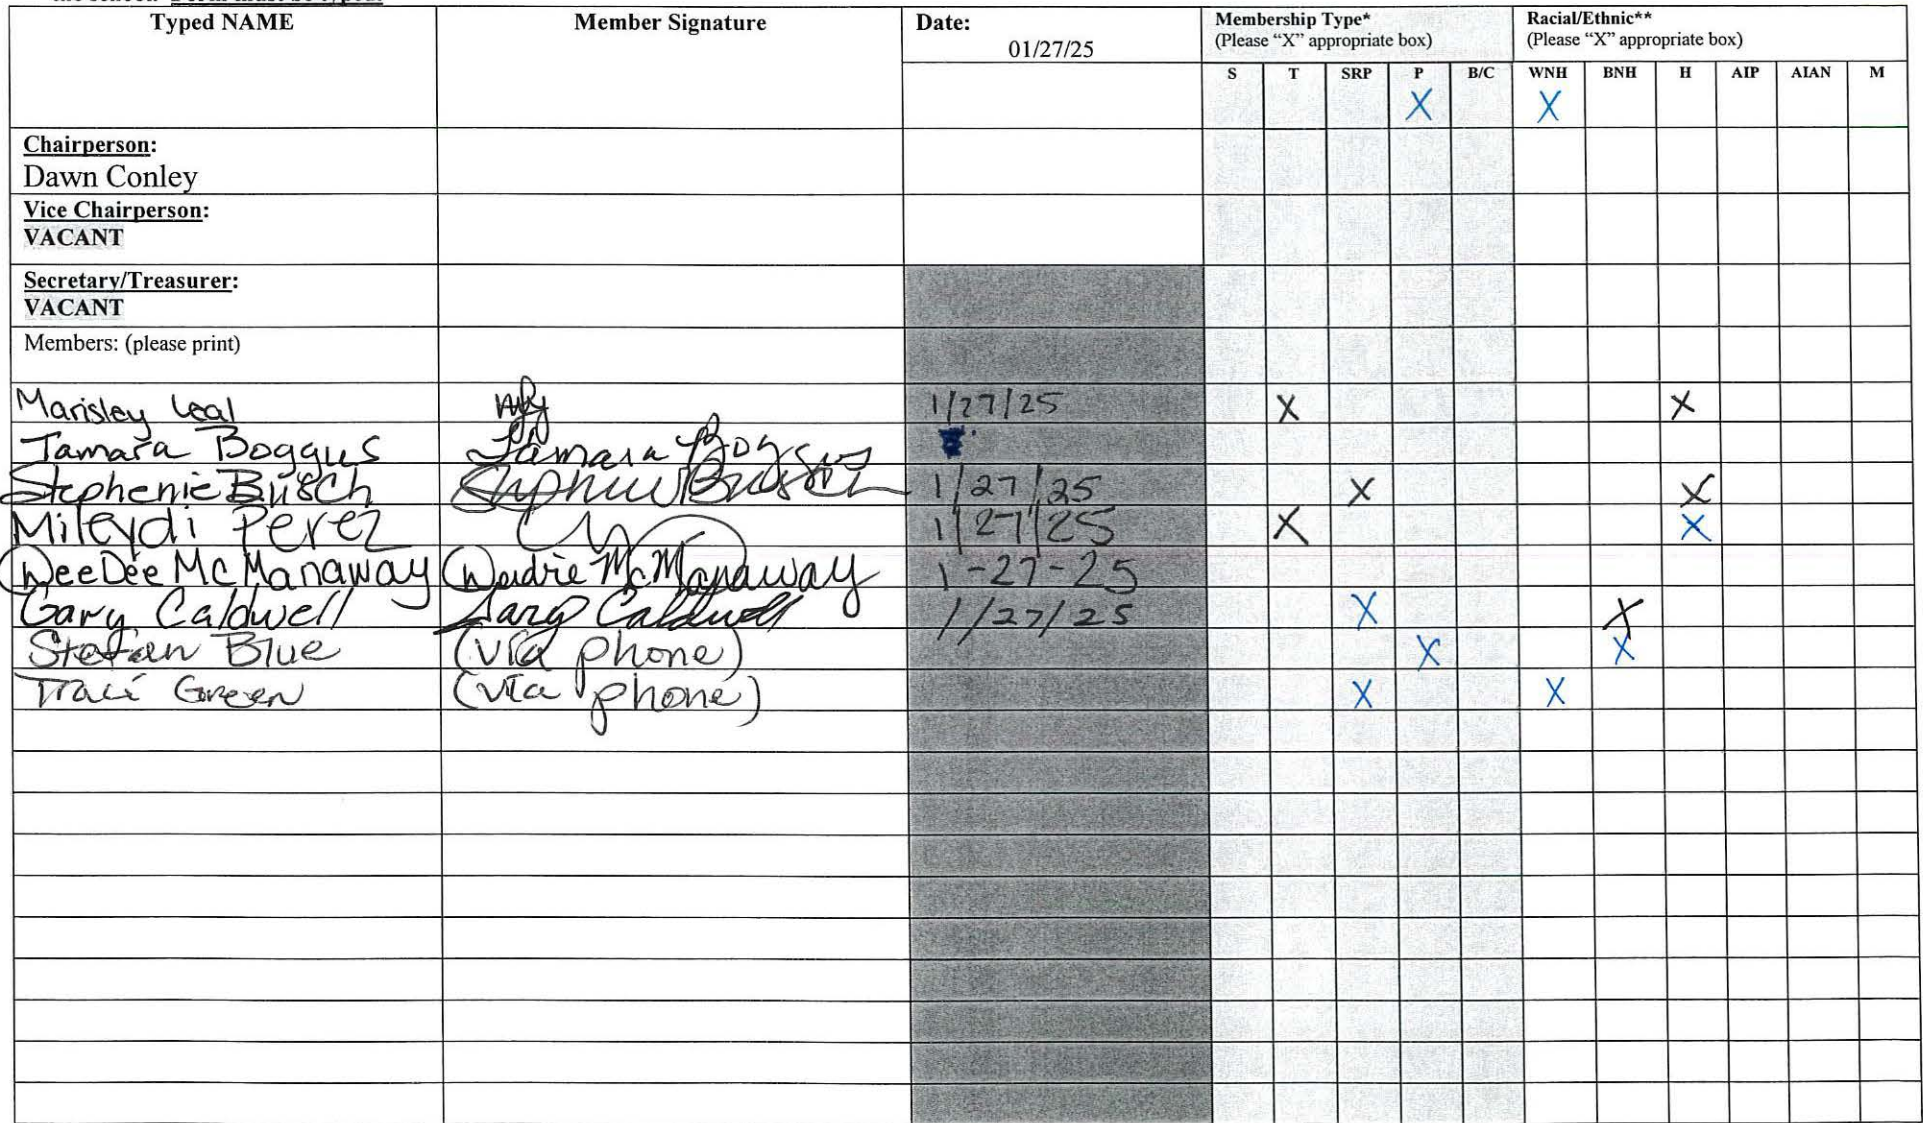 Typed NAME Member Signature Date: Membership Type* Racial/Ethnic**
(Please “X” appropriate box) (Please “X” appropriate box)
01/27/25
S T SRP P B/C WNH BNH H AIP AIAN M
X X
Chairperson:
Dawn Conley
Vice Chairperson:
VACANT
Secretary/Treasurer:
VACANT
Members: (please print)
Marisley Leal 1/27/25 X X
Tamara Boggus Tamara Boggus
Stephenie Busch Stephenie Busch 1/27/25 X X
Mileydi Perez 1/27/25 X X
DeeDee McManaway Deidre McManaway 1-27-25
Gary Caldwell Gary Caldwell 1/27/25 X X
Stefan Blue (via phone) X X
Traci Green (via phone) X X